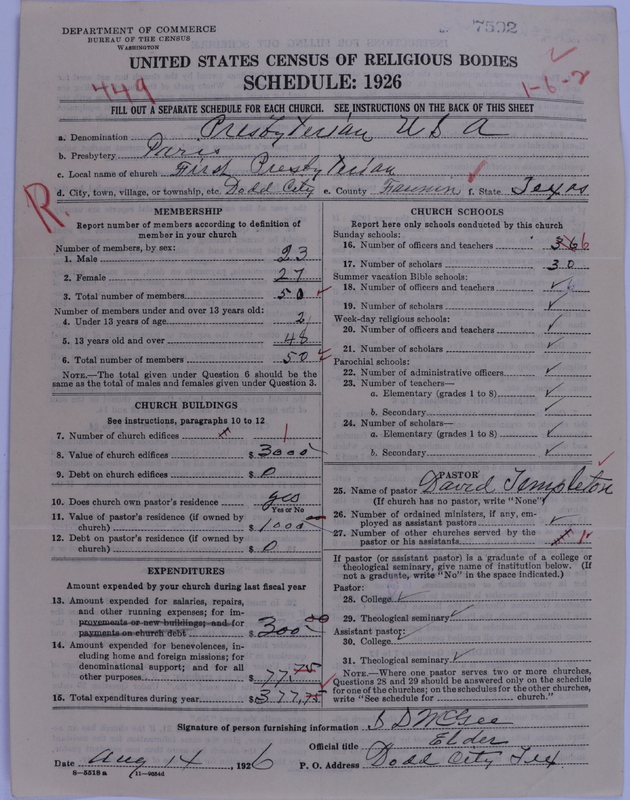 DEPARTMENT OF COMMERCE
BUREAU OF THE CENSUS
WASHINGTON
7502
UNITED STATES CENSUS OF RELIGIOUS BODIES
SCHEDULE: 1926
449
1-6-2
FILL OUT A SEPARATE SCHEDULE FOR EACH CHURCH. SEE INSTRUCTIONS ON THE BACK OF THIS SHEET
a. Denomination Presbyterian U S A
b. Presbytery Paris
c. Local name of church First Presbyterian
d. City, town, village, or township, etc. Dodd City e. County Fannin f. State Texas
R.
MEMBERSHIP
Report number of members according to definition of
member in your church
Number of members, by sex:
1. Male 23
2. Female 27
3. Total number of members 50
Number of members under and over 13 years old:
4. Under 13 years of age 2
5. 13 years old and over 48
6. Total number of members 50
NOTE.—The total given under Question 6 should be
the same as the total of males and females given under Question 3.
CHURCH BUILDINGS
See instructions, paragraphs 10 to 12
7. Number of church edifices 1
8. Value of church edifices $ 3000
9. Debt on church edifices $ 0
10. Does church own pastor's residence yes
Yes or No
11. Value of pastor's residence (if owned by
church) $ 1000
12. Debt on pastor's residence (if owned by
church) $ 0
EXPENDITURES
Amount expended by your church during last fiscal year
13. Amount expended for salaries, repairs,
and other running expenses; for im-
provements or new buildings; and for
payments on church debt $ 300 00
14. Amount expended for benevolences, in-
cluding home and foreign missions; for
denominational support; and for all
other purposes $ 77.75
15. Total expenditures during year $ 377.75
CHURCH SCHOOLS
Report here only schools conducted by this church
Sunday schools:
16. Number of officers and teachers 6
17. Number of scholars 30
Summer vacation Bible schools:
18. Number of officers and teachers
19. Number of scholars
Week-day religious schools:
20. Number of officers and teachers
21. Number of scholars
Parochial schools:
22. Number of administrative officers
23. Number of teachers—
a. Elementary (grades 1 to 8)
b. Secondary
24. Number of scholars—
a. Elementary (grades 1 to 8)
b. Secondary
PASTOR
25. Name of pastor David Templeton
(If church has no pastor, write "None")
26. Number of ordained ministers, if any, em-
ployed as assistant pastors
27. Number of other churches served by the
pastor or his assistants
If pastor (or assistant pastor) is a graduate of a college or
theological seminary, give name of institution below. (If
not a graduate, write "No" in the space indicated.)
Pastor:
28. College
29. Theological seminary
Assistant pastor:
30. College
31. Theological seminary
NOTE.—Where one pastor serves two or more churches,
Questions 28 and 29 should be answered only on the schedule
for one of the churches; on the schedules for the other churches,
write "See schedule for church."
Signature of person furnishing information B D McGee
Official title Elder
Date Aug 14, 1926 P. O. Address Dodd City Tex
8-5518a 11-9654d